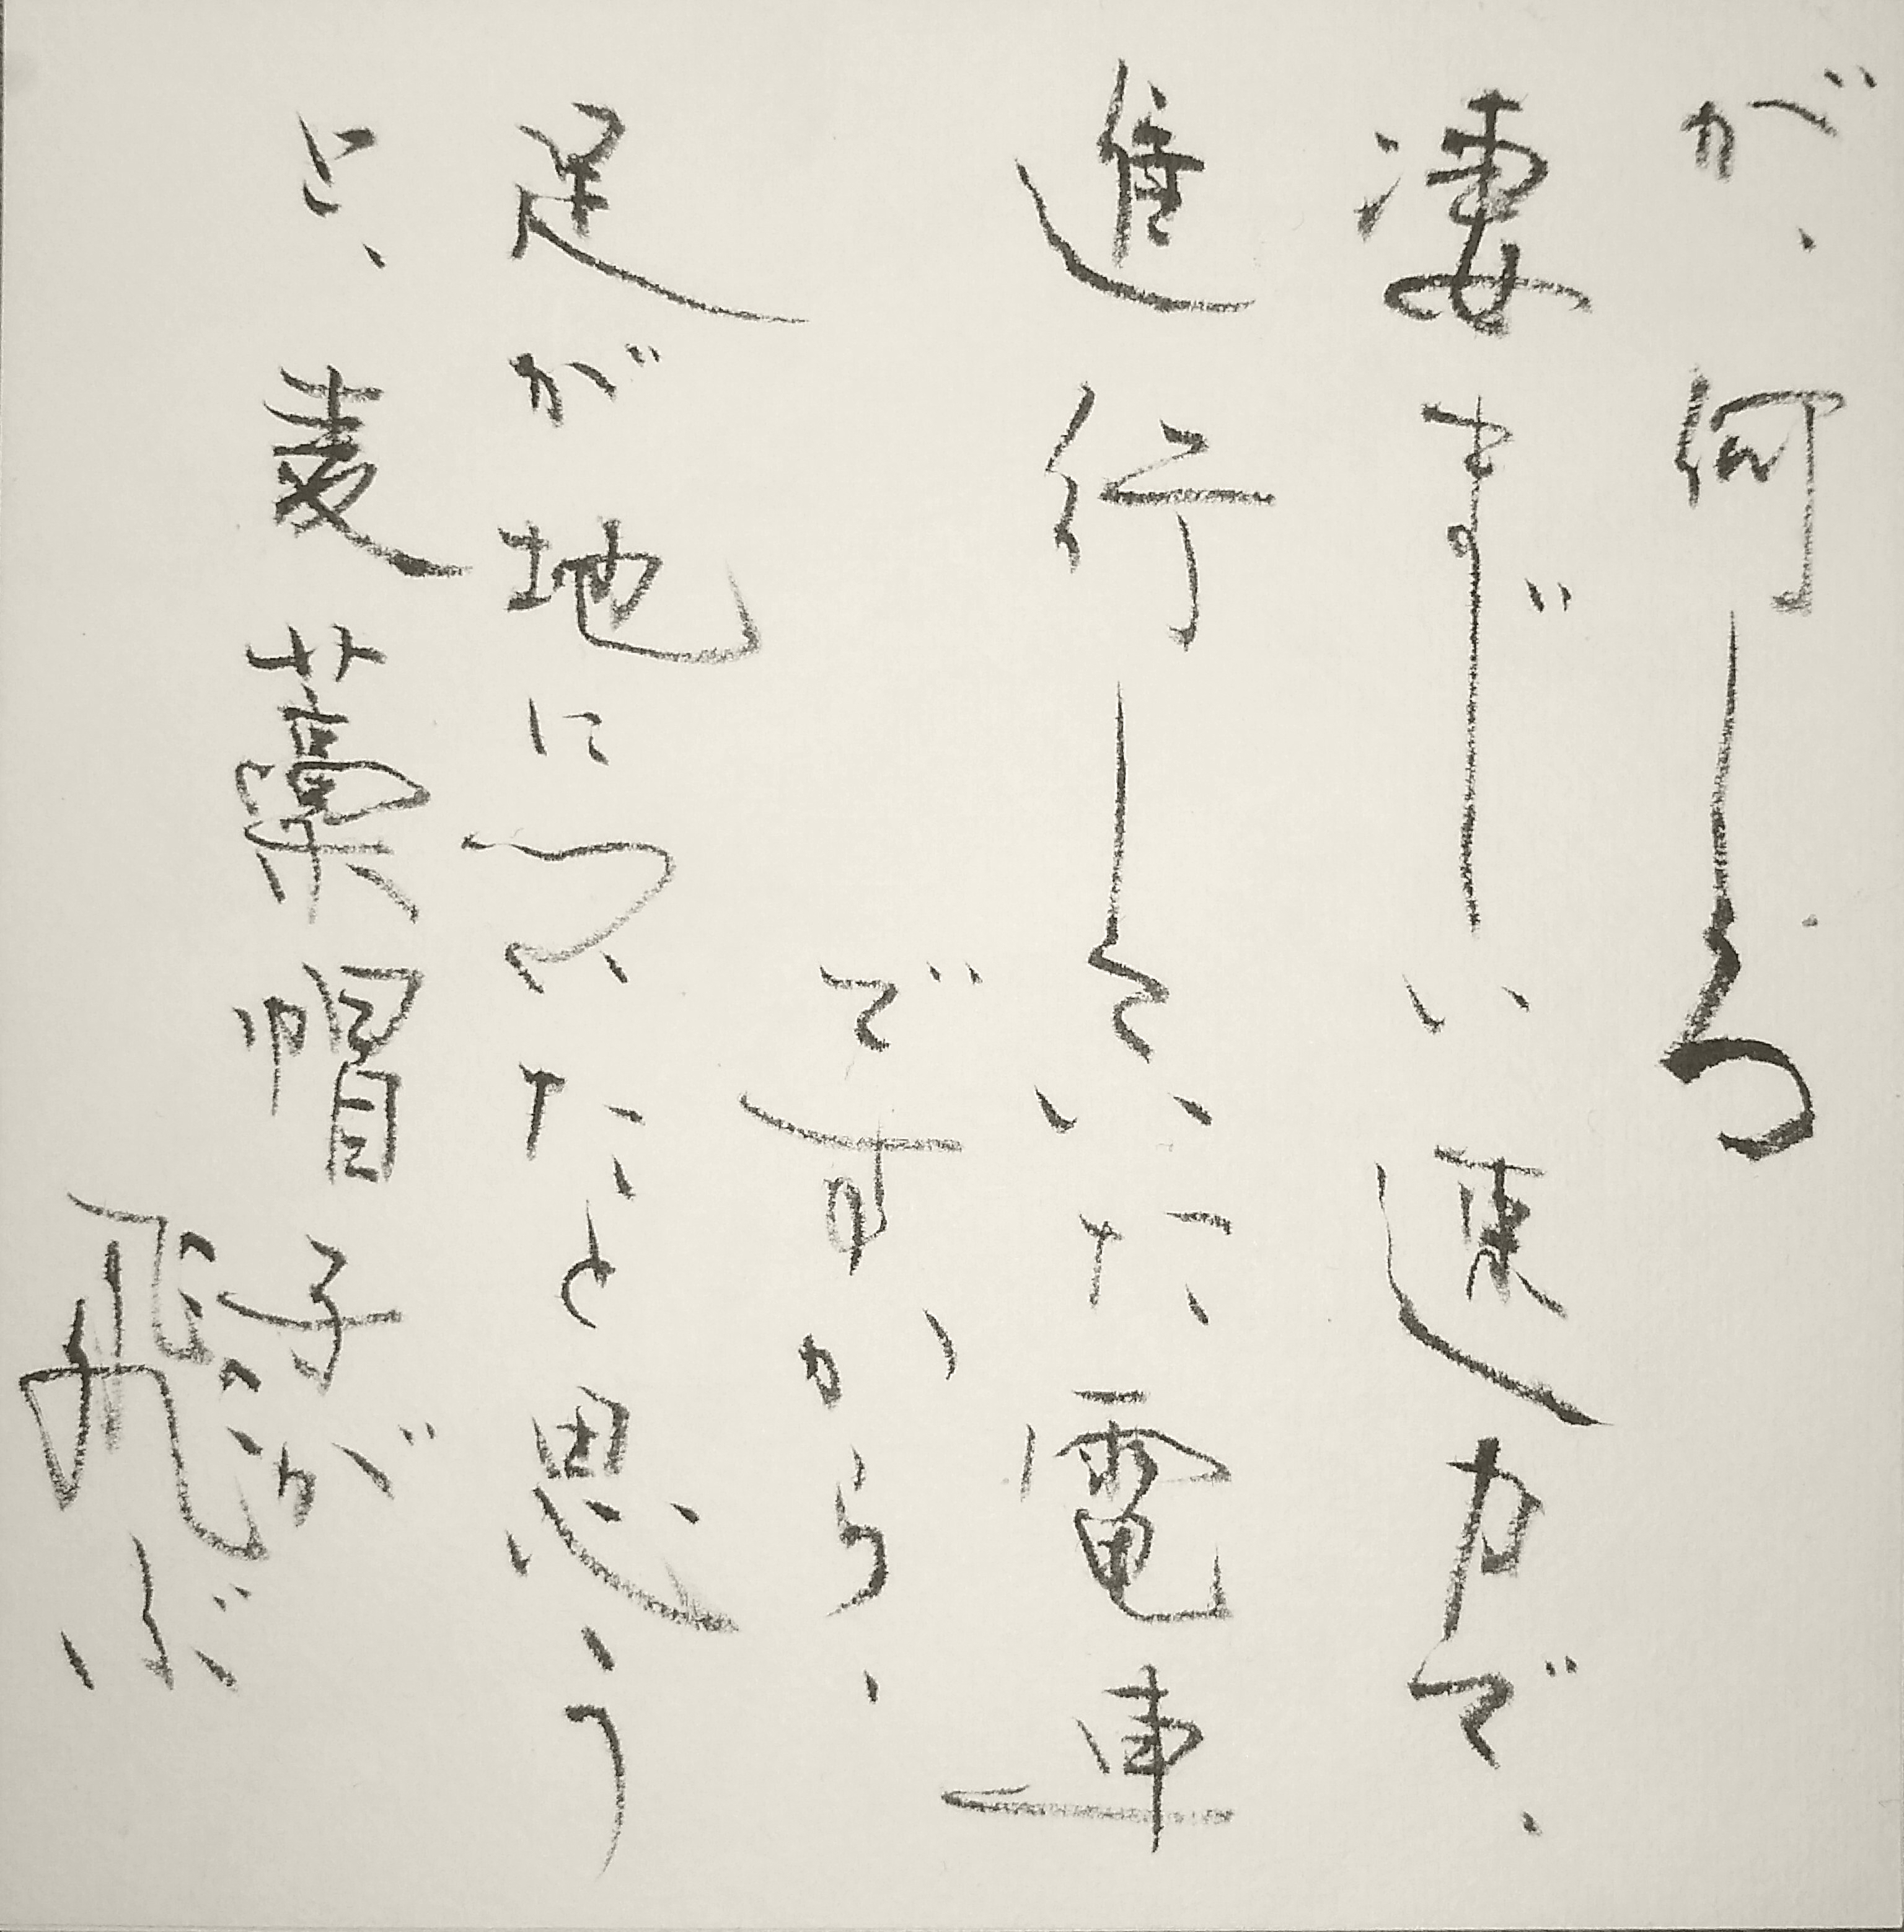 が、何しろ
凄まじい速力で、
進行していた電車
ですから、
足が地についたと思う
と、麦藁帽子が
飛ぶ